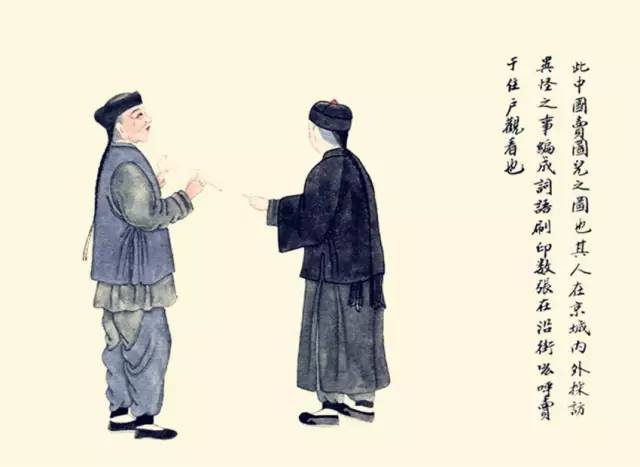 此中國賣圖兒之圖也其人在京城內外採訪
異怪之事編成詞語刷印数張在沿街吆呼賣
于住戶觀看也